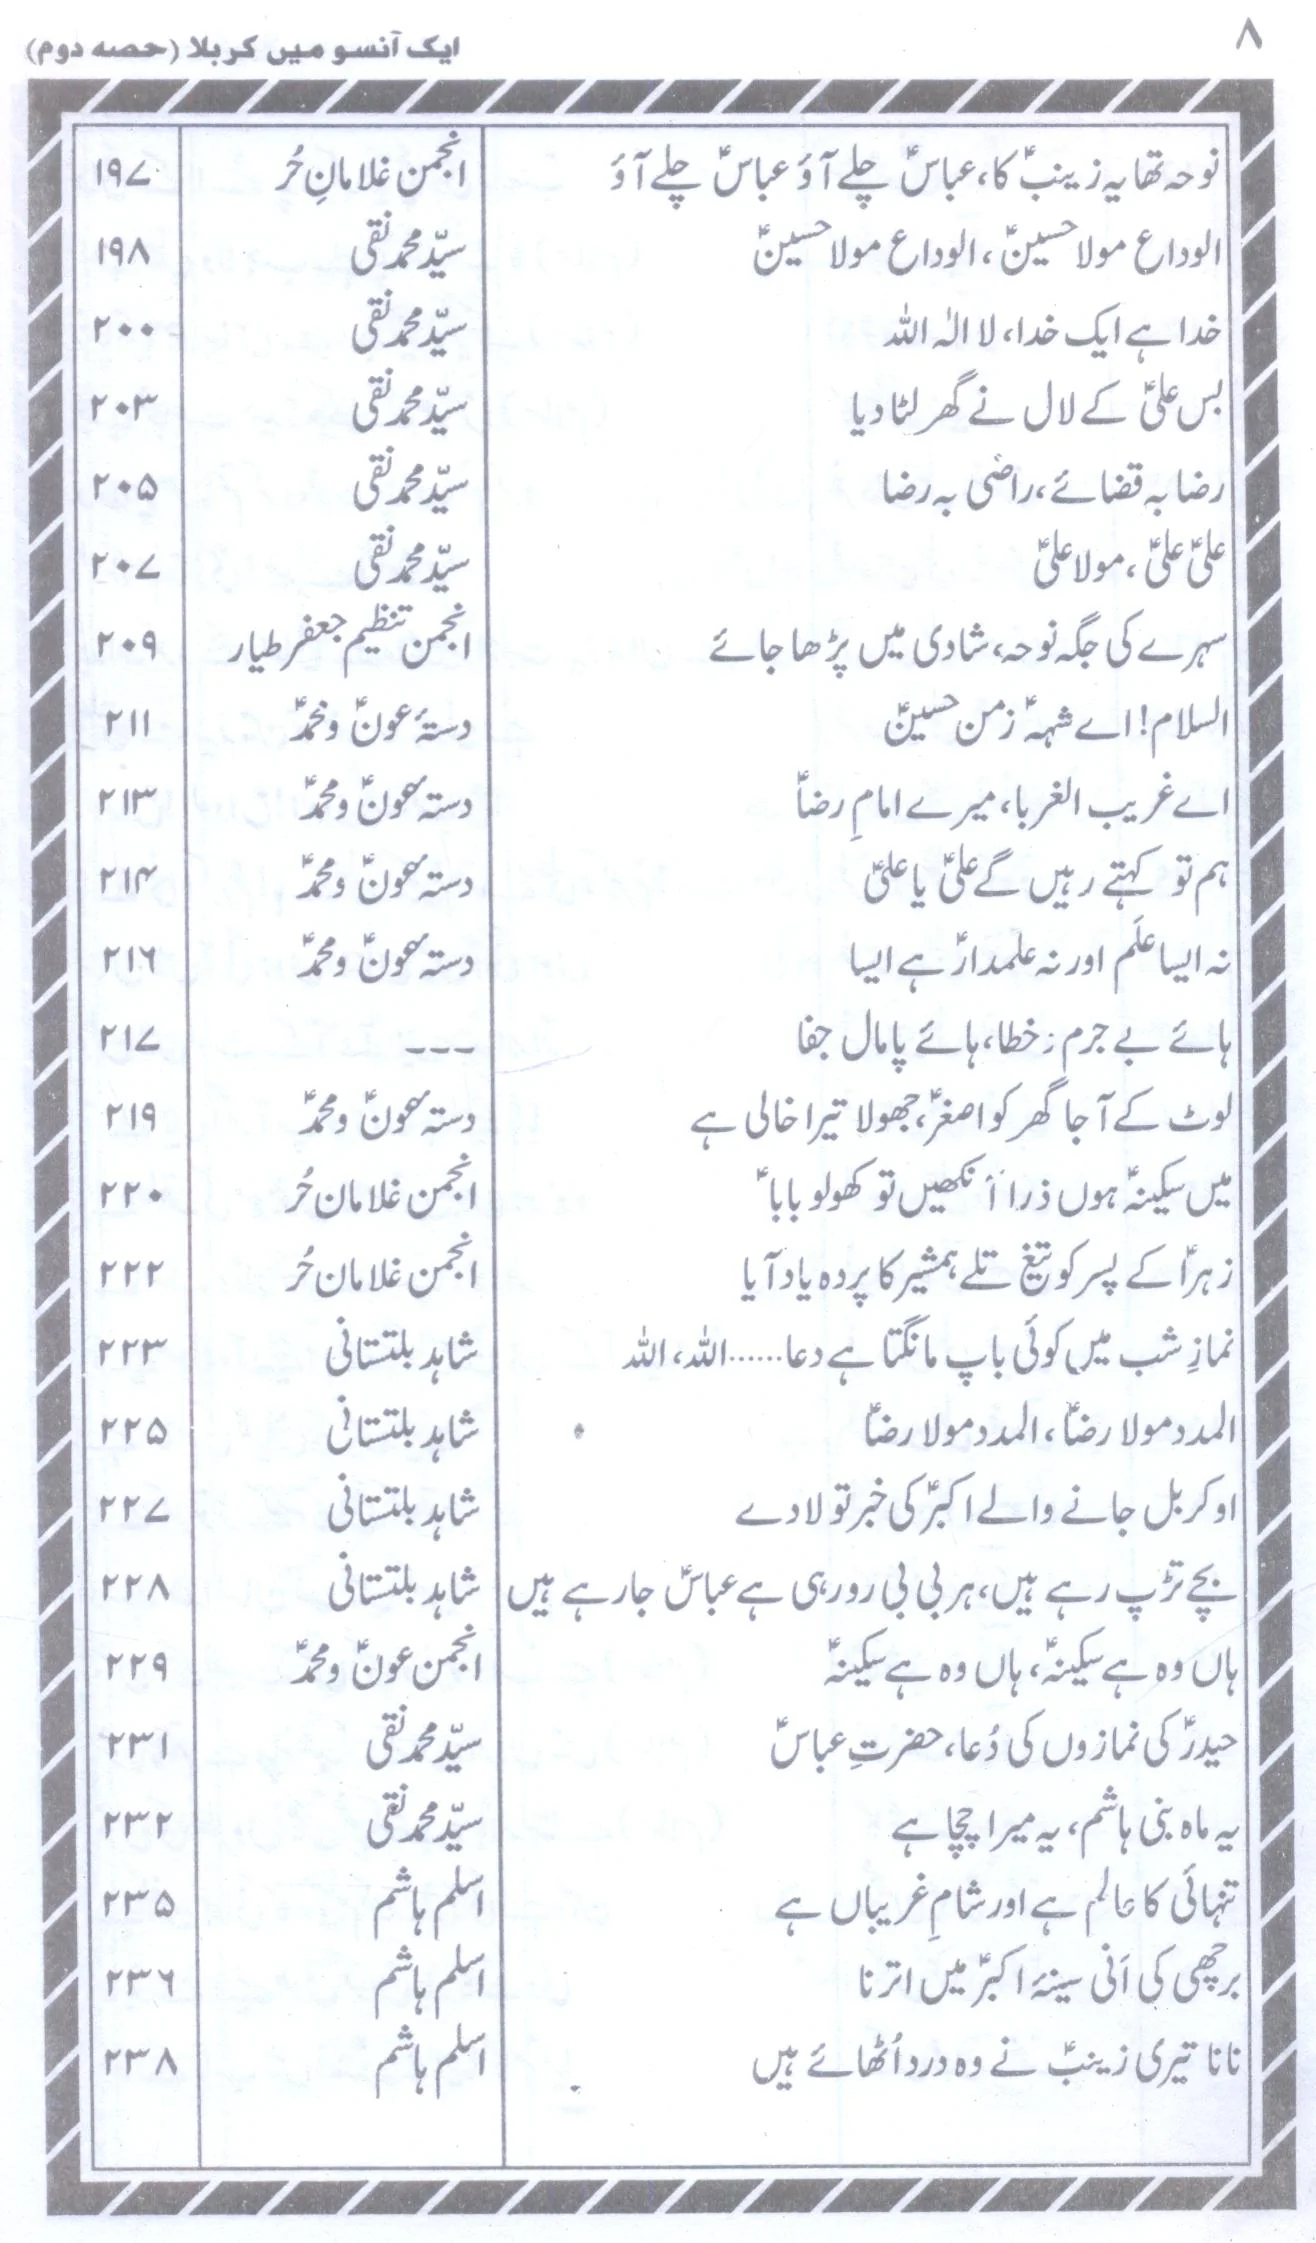 ۸
ایک آنسو میں کربلا (حصہ دوم)
نوحہ تھا یہ زینبؑ کا، عباسؑ چلے آؤ عباسؑ چلے آؤ انجمن غلامانِ حُر ۱۹۷
الوداع مولا حسینؑ، الوداع مولا حسینؑ سیّد محمد نقی ۱۹۸
خدا ہے ایک خدا، لا الٰہ اللہ سیّد محمد نقی ۲۰۰
بس علیؑ کے لال نے گھر لٹا دیا سیّد محمد نقی ۲۰۳
رضا بہ قضائے، راضی بہ رضا سیّد محمد نقی ۲۰۵
علیؑ علیؑ، مولا علیؑ سیّد محمد نقی ۲۰۷
سہرے کی جگہ نوحہ، شادی میں پڑھا جائے انجمن تنظیم جعفر طیار ۲۰۹
السلام! اے شہہؑ زمن حسینؑ دستۂ عونؑ و محمدؑ ۲۱۱
اے غریب الغربا، میرے امامِ رضاؑ دستہ عونؑ و محمدؑ ۲۱۳
ہم تو کہتے رہیں گے علیؑ یا علیؑ دستہ عونؑ و محمدؑ ۲۱۴
نہ ایسا علَم اور نہ علمدارؑ ہے ایسا دستہ عونؑ و محمدؑ ۲۱۶
ہائے بے جرم خطا، ہائے پامال جفا ۔۔۔ ۲۱۷
لوٹ کے آ جا گھر کو اصغرؑ، جھولا تیرا خالی ہے دستہ عونؑ و محمدؑ ۲۱۹
میں سکینہؑ ہوں ذرا آنکھیں تو کھولو باباؑ انجمن غلامان حُر ۲۲۰
زہراؑ کے پسر کو تیغ تلے ہمشیر کا پردہ یاد آیا انجمن غلامان حُر ۲۲۲
نمازِ شب میں کوئی باپ مانگتا ہے دعا......اللہ، اللہ شاہد بلتستانی ۲۲۳
المدد مولا رضاؑ، المدد مولا رضاؑ شاہد بلتستانی ۲۲۵
او کربل جانے والے اکبرؑ کی خبر تو لا دے شاہد بلتستانی ۲۲۷
بچے تڑپ رہے ہیں، ہر بی بی رو رہی ہے عباسؑ جا رہے ہیں شاہد بلتستانی ۲۲۸
ہاں وہ ہے سکینہؑ، ہاں وہ ہے سکینہؑ انجمن عونؑ و محمدؑ ۲۲۹
حیدرؑ کی نمازوں کی دُعا، حضرتِ عباسؑ سیّد محمد نقی ۲۳۱
یہ ماہ بنی ہاشم، یہ میرا چچا ہے سیّد محمد نقی ۲۳۲
تنہائی کا عالم ہے اور شامِ غریباں ہے اسلم ہاشم ۲۳۵
برچھی کی اَنی سینۂ اکبرؑ میں اترنا اسلم ہاشم ۲۳۶
نانا تیری زینبؑ نے وہ درد اُٹھائے ہیں اسلم ہاشم ۲۳۸